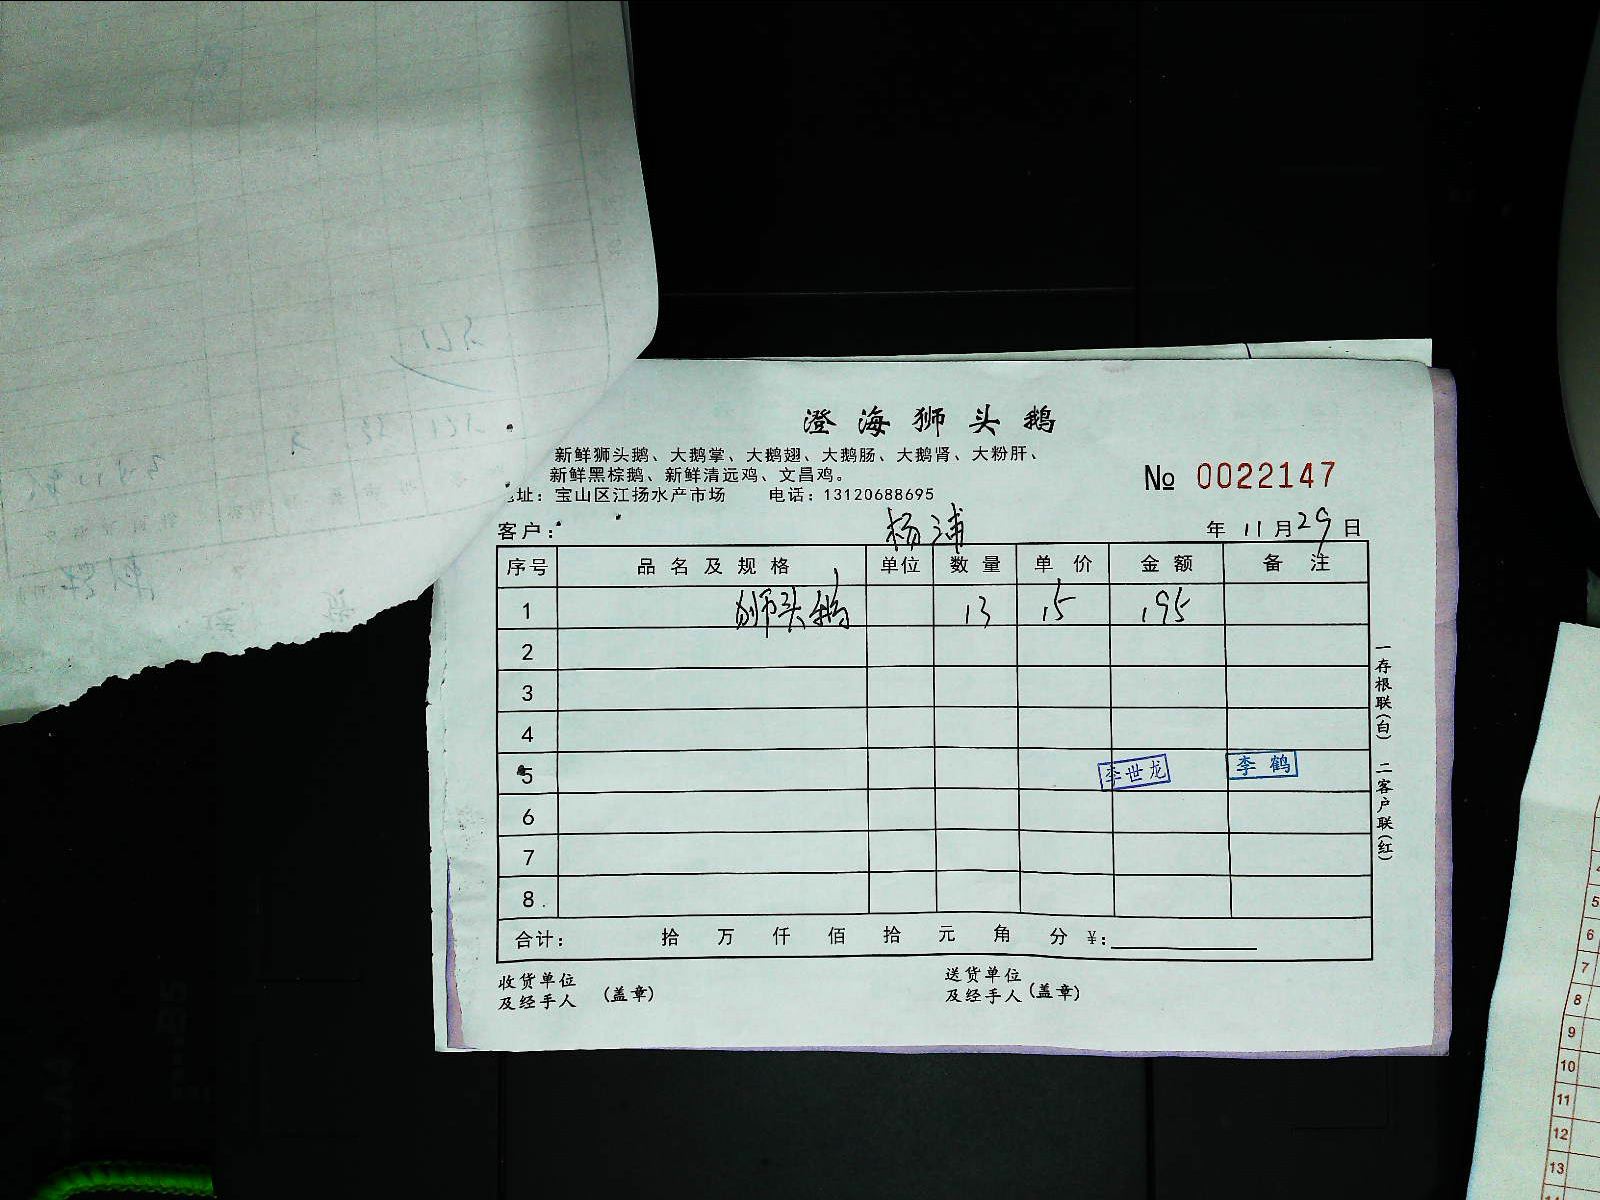 澄海狮头鹅
新鲜狮头鹅、大鹅掌、大鹅翅、大鹅肠、大鹅肾、大粉肝、
新鲜黑棕鹅、新鲜清远鸡、文昌鸡。
址：宝山区江扬水产市场 电话：13120688695
№ 0022147
客户： 杨浦 年 11 月 29 日
序号 品名及规格 单位 数量 单价 金额 备注
1 狮头鹅 13 15 195
2
3
4
5 李世龙 李鹤
6
7
8
合计： 拾 万 仟 佰 拾 元 角 分 ¥：
收货单位 送货单位
及经手人 (盖章) 及经手人 (盖章)
一存根联(白) 二客户联(红)
5
6
7
8
9
10
11
12
13